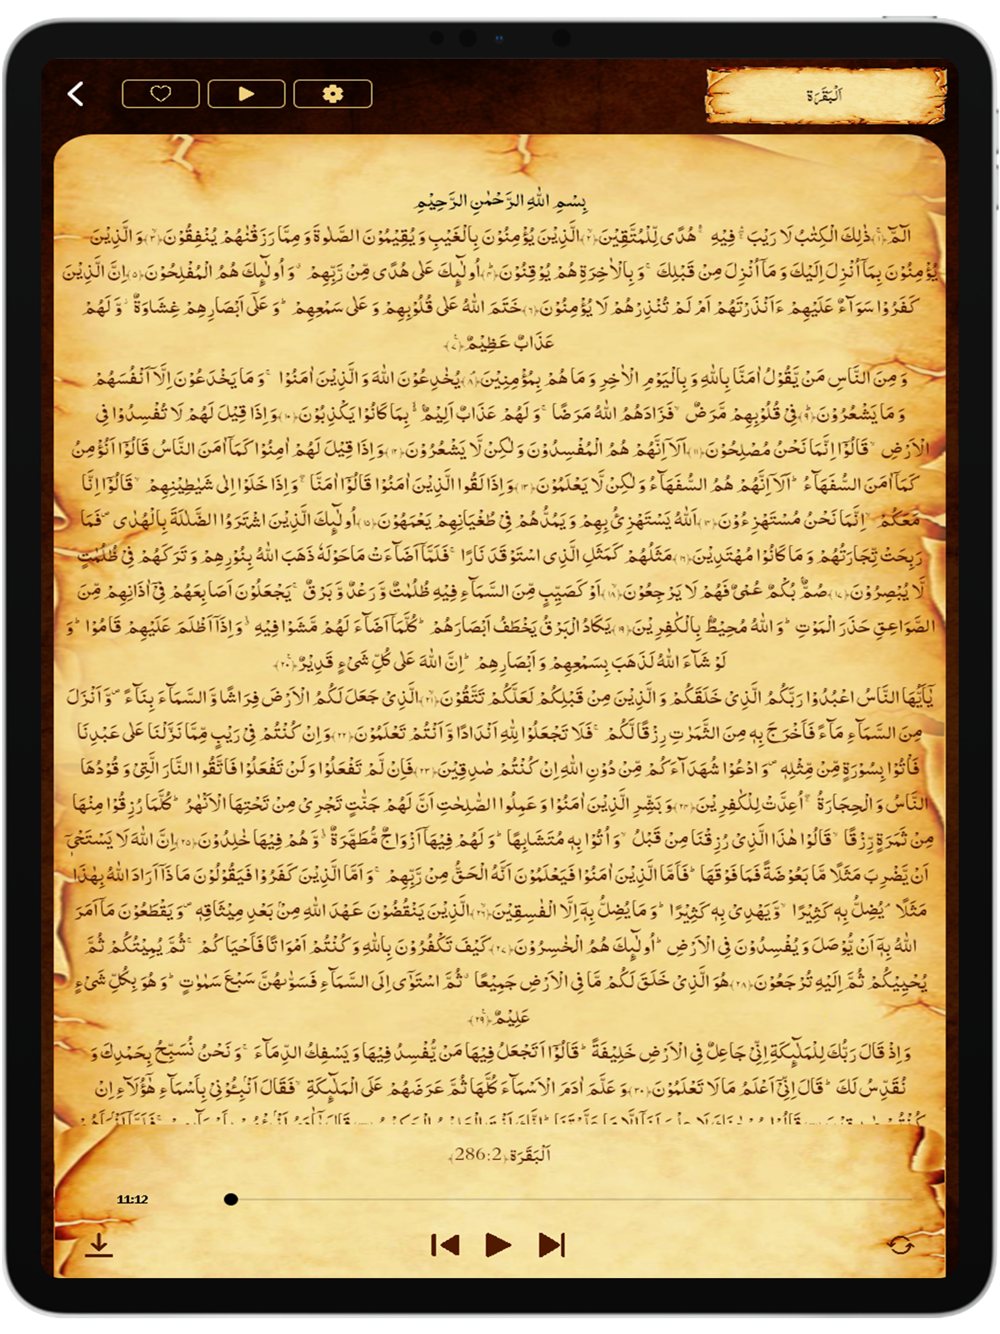 اَلْبَقَرَة
بِسْمِ اللهِ الرَّحْمٰنِ الرَّحِيْمِ
الٓمّٓ ﴿١﴾ ذٰلِكَ الْكِتٰبُ لَا رَيْبَ ۛ فِيْهِ ۛ هُدًى لِّلْمُتَّقِيْنَ ﴿٢﴾ الَّذِيْنَ يُؤْمِنُوْنَ بِالْغَيْبِ وَ يُقِيْمُوْنَ الصَّلٰوةَ وَ مِمَّا رَزَقْنٰهُمْ يُنْفِقُوْنَ ﴿٣﴾ وَ الَّذِيْنَ
يُؤْمِنُوْنَ بِمَاۤ اُنْزِلَ اِلَيْكَ وَ مَاۤ اُنْزِلَ مِنْ قَبْلِكَ ۚ وَ بِالْاٰخِرَةِ هُمْ يُوْقِنُوْنَ ﴿٤﴾ اُولٰٓىِٕكَ عَلٰى هُدًى مِّنْ رَّبِّهِمْ ۗ وَ اُولٰٓىِٕكَ هُمُ الْمُفْلِحُوْنَ ﴿٥﴾ اِنَّ الَّذِيْنَ
كَفَرُوْا سَوَآءٌ عَلَيْهِمْ ءَاَنْذَرْتَهُمْ اَمْ لَمْ تُنْذِرْهُمْ لَا يُؤْمِنُوْنَ ﴿٦﴾ خَتَمَ اللهُ عَلٰى قُلُوْبِهِمْ وَ عَلٰى سَمْعِهِمْ ؕ وَ عَلٰۤى اَبْصَارِهِمْ غِشَاوَةٌ ؗ وَّ لَهُمْ
عَذَابٌ عَظِيْمٌ ﴿٧﴾
وَ مِنَ النَّاسِ مَنْ يَّقُوْلُ اٰمَنَّا بِاللهِ وَ بِالْيَوْمِ الْاٰخِرِ وَ مَا هُمْ بِمُؤْمِنِيْنَ ﴿٨﴾ يُخٰدِعُوْنَ اللهَ وَ الَّذِيْنَ اٰمَنُوْا ۚ وَ مَا يَخْدَعُوْنَ اِلَّاۤ اَنْفُسَهُمْ
وَ مَا يَشْعُرُوْنَ ﴿٩﴾ فِيْ قُلُوْبِهِمْ مَّرَضٌ ۙ فَزَادَهُمُ اللهُ مَرَضًا ۚ وَ لَهُمْ عَذَابٌ اَلِيْمٌ ۙ۬ بِمَا كَانُوْا يَكْذِبُوْنَ ﴿١٠﴾ وَ اِذَا قِيْلَ لَهُمْ لَا تُفْسِدُوْا فِي
الْاَرْضِ ۙ قَالُوْۤا اِنَّمَا نَحْنُ مُصْلِحُوْنَ ﴿١١﴾ اَلَاۤ اِنَّهُمْ هُمُ الْمُفْسِدُوْنَ وَ لٰكِنْ لَّا يَشْعُرُوْنَ ﴿١٢﴾ وَ اِذَا قِيْلَ لَهُمْ اٰمِنُوْا كَمَاۤ اٰمَنَ النَّاسُ قَالُوْۤا اَنُؤْمِنُ
كَمَاۤ اٰمَنَ السُّفَهَآءُ ؕ اَلَاۤ اِنَّهُمْ هُمُ السُّفَهَآءُ وَ لٰكِنْ لَّا يَعْلَمُوْنَ ﴿١٣﴾ وَ اِذَا لَقُوا الَّذِيْنَ اٰمَنُوْا قَالُوْۤا اٰمَنَّا ۖۚ وَ اِذَا خَلَوْا اِلٰى شَيٰطِيْنِهِمْ ۙ قَالُوْۤا اِنَّا
مَعَكُمْ ۙ اِنَّمَا نَحْنُ مُسْتَهْزِءُوْنَ ﴿١٤﴾ اَللهُ يَسْتَهْزِئُ بِهِمْ وَ يَمُدُّهُمْ فِيْ طُغْيَانِهِمْ يَعْمَهُوْنَ ﴿١٥﴾ اُولٰٓىِٕكَ الَّذِيْنَ اشْتَرَوُا الضَّلٰلَةَ بِالْهُدٰى ۪ فَمَا
رَبِحَتْ تِّجَارَتُهُمْ وَ مَا كَانُوْا مُهْتَدِيْنَ ﴿١٦﴾ مَثَلُهُمْ كَمَثَلِ الَّذِي اسْتَوْقَدَ نَارًا ۚ فَلَمَّاۤ اَضَآءَتْ مَا حَوْلَهٗ ذَهَبَ اللهُ بِنُوْرِهِمْ وَ تَرَكَهُمْ فِيْ ظُلُمٰتٍ
لَّا يُبْصِرُوْنَ ﴿١٧﴾ صُمٌّۢ بُكْمٌ عُمْيٌ فَهُمْ لَا يَرْجِعُوْنَ ﴿١٨﴾ اَوْ كَصَيِّبٍ مِّنَ السَّمَآءِ فِيْهِ ظُلُمٰتٌ وَّ رَعْدٌ وَّ بَرْقٌ ۚ يَجْعَلُوْنَ اَصَابِعَهُمْ فِيْۤ اٰذَانِهِمْ مِّنَ
الصَّوَاعِقِ حَذَرَ الْمَوْتِ ؕ وَ اللهُ مُحِيْطٌۢ بِالْكٰفِرِيْنَ ﴿١٩﴾ يَكَادُ الْبَرْقُ يَخْطَفُ اَبْصَارَهُمْ ؕ كُلَّمَاۤ اَضَآءَ لَهُمْ مَّشَوْا فِيْهِ ۙۗ وَ اِذَاۤ اَظْلَمَ عَلَيْهِمْ قَامُوْا ؕ وَ
لَوْ شَآءَ اللهُ لَذَهَبَ بِسَمْعِهِمْ وَ اَبْصَارِهِمْ ؕ اِنَّ اللهَ عَلٰى كُلِّ شَيْءٍ قَدِيْرٌ ﴿٢٠﴾
يٰۤاَيُّهَا النَّاسُ اعْبُدُوْا رَبَّكُمُ الَّذِيْ خَلَقَكُمْ وَ الَّذِيْنَ مِنْ قَبْلِكُمْ لَعَلَّكُمْ تَتَّقُوْنَ ﴿٢١﴾ الَّذِيْ جَعَلَ لَكُمُ الْاَرْضَ فِرَاشًا وَّ السَّمَآءَ بِنَآءً ۪ وَّ اَنْزَلَ
مِنَ السَّمَآءِ مَآءً فَاَخْرَجَ بِهٖ مِنَ الثَّمَرٰتِ رِزْقًا لَّكُمْ ۚ فَلَا تَجْعَلُوْا لِلّٰهِ اَنْدَادًا وَّ اَنْتُمْ تَعْلَمُوْنَ ﴿٢٢﴾ وَ اِنْ كُنْتُمْ فِيْ رَيْبٍ مِّمَّا نَزَّلْنَا عَلٰى عَبْدِنَا
فَاْتُوْا بِسُوْرَةٍ مِّنْ مِّثْلِهٖ ۪ وَ ادْعُوْا شُهَدَآءَكُمْ مِّنْ دُوْنِ اللهِ اِنْ كُنْتُمْ صٰدِقِيْنَ ﴿٢٣﴾ فَاِنْ لَّمْ تَفْعَلُوْا وَ لَنْ تَفْعَلُوْا فَاتَّقُوا النَّارَ الَّتِيْ وَ قُوْدُهَا
النَّاسُ وَ الْحِجَارَةُ ۖۚ اُعِدَّتْ لِلْكٰفِرِيْنَ ﴿٢٤﴾ وَ بَشِّرِ الَّذِيْنَ اٰمَنُوْا وَ عَمِلُوا الصّٰلِحٰتِ اَنَّ لَهُمْ جَنّٰتٍ تَجْرِيْ مِنْ تَحْتِهَا الْاَنْهٰرُ ؕ كُلَّمَا رُزِقُوْا مِنْهَا
مِنْ ثَمَرَةٍ رِّزْقًا ۙ قَالُوْا هٰذَا الَّذِيْ رُزِقْنَا مِنْ قَبْلُ ۙ وَ اُتُوْا بِهٖ مُتَشَابِهًا ؕ وَ لَهُمْ فِيْهَاۤ اَزْوَاجٌ مُّطَهَّرَةٌ ۙۗ وَّ هُمْ فِيْهَا خٰلِدُوْنَ ﴿٢٥﴾ اِنَّ اللهَ لَا يَسْتَحْيٖۤ
اَنْ يَّضْرِبَ مَثَلًا مَّا بَعُوْضَةً فَمَا فَوْقَهَا ؕ فَاَمَّا الَّذِيْنَ اٰمَنُوْا فَيَعْلَمُوْنَ اَنَّهُ الْحَقُّ مِنْ رَّبِّهِمْ ۚ وَ اَمَّا الَّذِيْنَ كَفَرُوْا فَيَقُوْلُوْنَ مَا ذَاۤ اَرَادَ اللهُ بِهٰذَا
مَثَلًا ۘ يُضِلُّ بِهٖ كَثِيْرًا ۙ وَّ يَهْدِيْ بِهٖ كَثِيْرًا ؕ وَ مَا يُضِلُّ بِهٖۤ اِلَّا الْفٰسِقِيْنَ ﴿٢٦﴾ الَّذِيْنَ يَنْقُضُوْنَ عَهْدَ اللهِ مِنْۢ بَعْدِ مِيْثَاقِهٖ ۪ وَ يَقْطَعُوْنَ مَاۤ اَمَرَ
اللهُ بِهٖۤ اَنْ يُّوْصَلَ وَ يُفْسِدُوْنَ فِي الْاَرْضِ ؕ اُولٰٓىِٕكَ هُمُ الْخٰسِرُوْنَ ﴿٢٧﴾ كَيْفَ تَكْفُرُوْنَ بِاللهِ وَ كُنْتُمْ اَمْوَاتًا فَاَحْيَاكُمْ ۚ ثُمَّ يُمِيْتُكُمْ ثُمَّ
يُحْيِيْكُمْ ثُمَّ اِلَيْهِ تُرْجَعُوْنَ ﴿٢٨﴾ هُوَ الَّذِيْ خَلَقَ لَكُمْ مَّا فِي الْاَرْضِ جَمِيْعًا ۗ ثُمَّ اسْتَوٰۤى اِلَى السَّمَآءِ فَسَوّٰىهُنَّ سَبْعَ سَمٰوٰتٍ ؕ وَ هُوَ بِكُلِّ شَيْءٍ
عَلِيْمٌ ﴿٢٩﴾
وَ اِذْ قَالَ رَبُّكَ لِلْمَلٰٓىِٕكَةِ اِنِّيْ جَاعِلٌ فِي الْاَرْضِ خَلِيْفَةً ؕ قَالُوْۤا اَتَجْعَلُ فِيْهَا مَنْ يُّفْسِدُ فِيْهَا وَ يَسْفِكُ الدِّمَآءَ ۚ وَ نَحْنُ نُسَبِّحُ بِحَمْدِكَ وَ
نُقَدِّسُ لَكَ ؕ قَالَ اِنِّيْۤ اَعْلَمُ مَا لَا تَعْلَمُوْنَ ﴿٣٠﴾ وَ عَلَّمَ اٰدَمَ الْاَسْمَآءَ كُلَّهَا ثُمَّ عَرَضَهُمْ عَلَى الْمَلٰٓىِٕكَةِ ۙ فَقَالَ اَنْۢبِـُٔوْنِيْ بِاَسْمَآءِ هٰۤؤُلَآءِ اِنْ
اَلْبَقَرَة ﴿286:2﴾
11:12